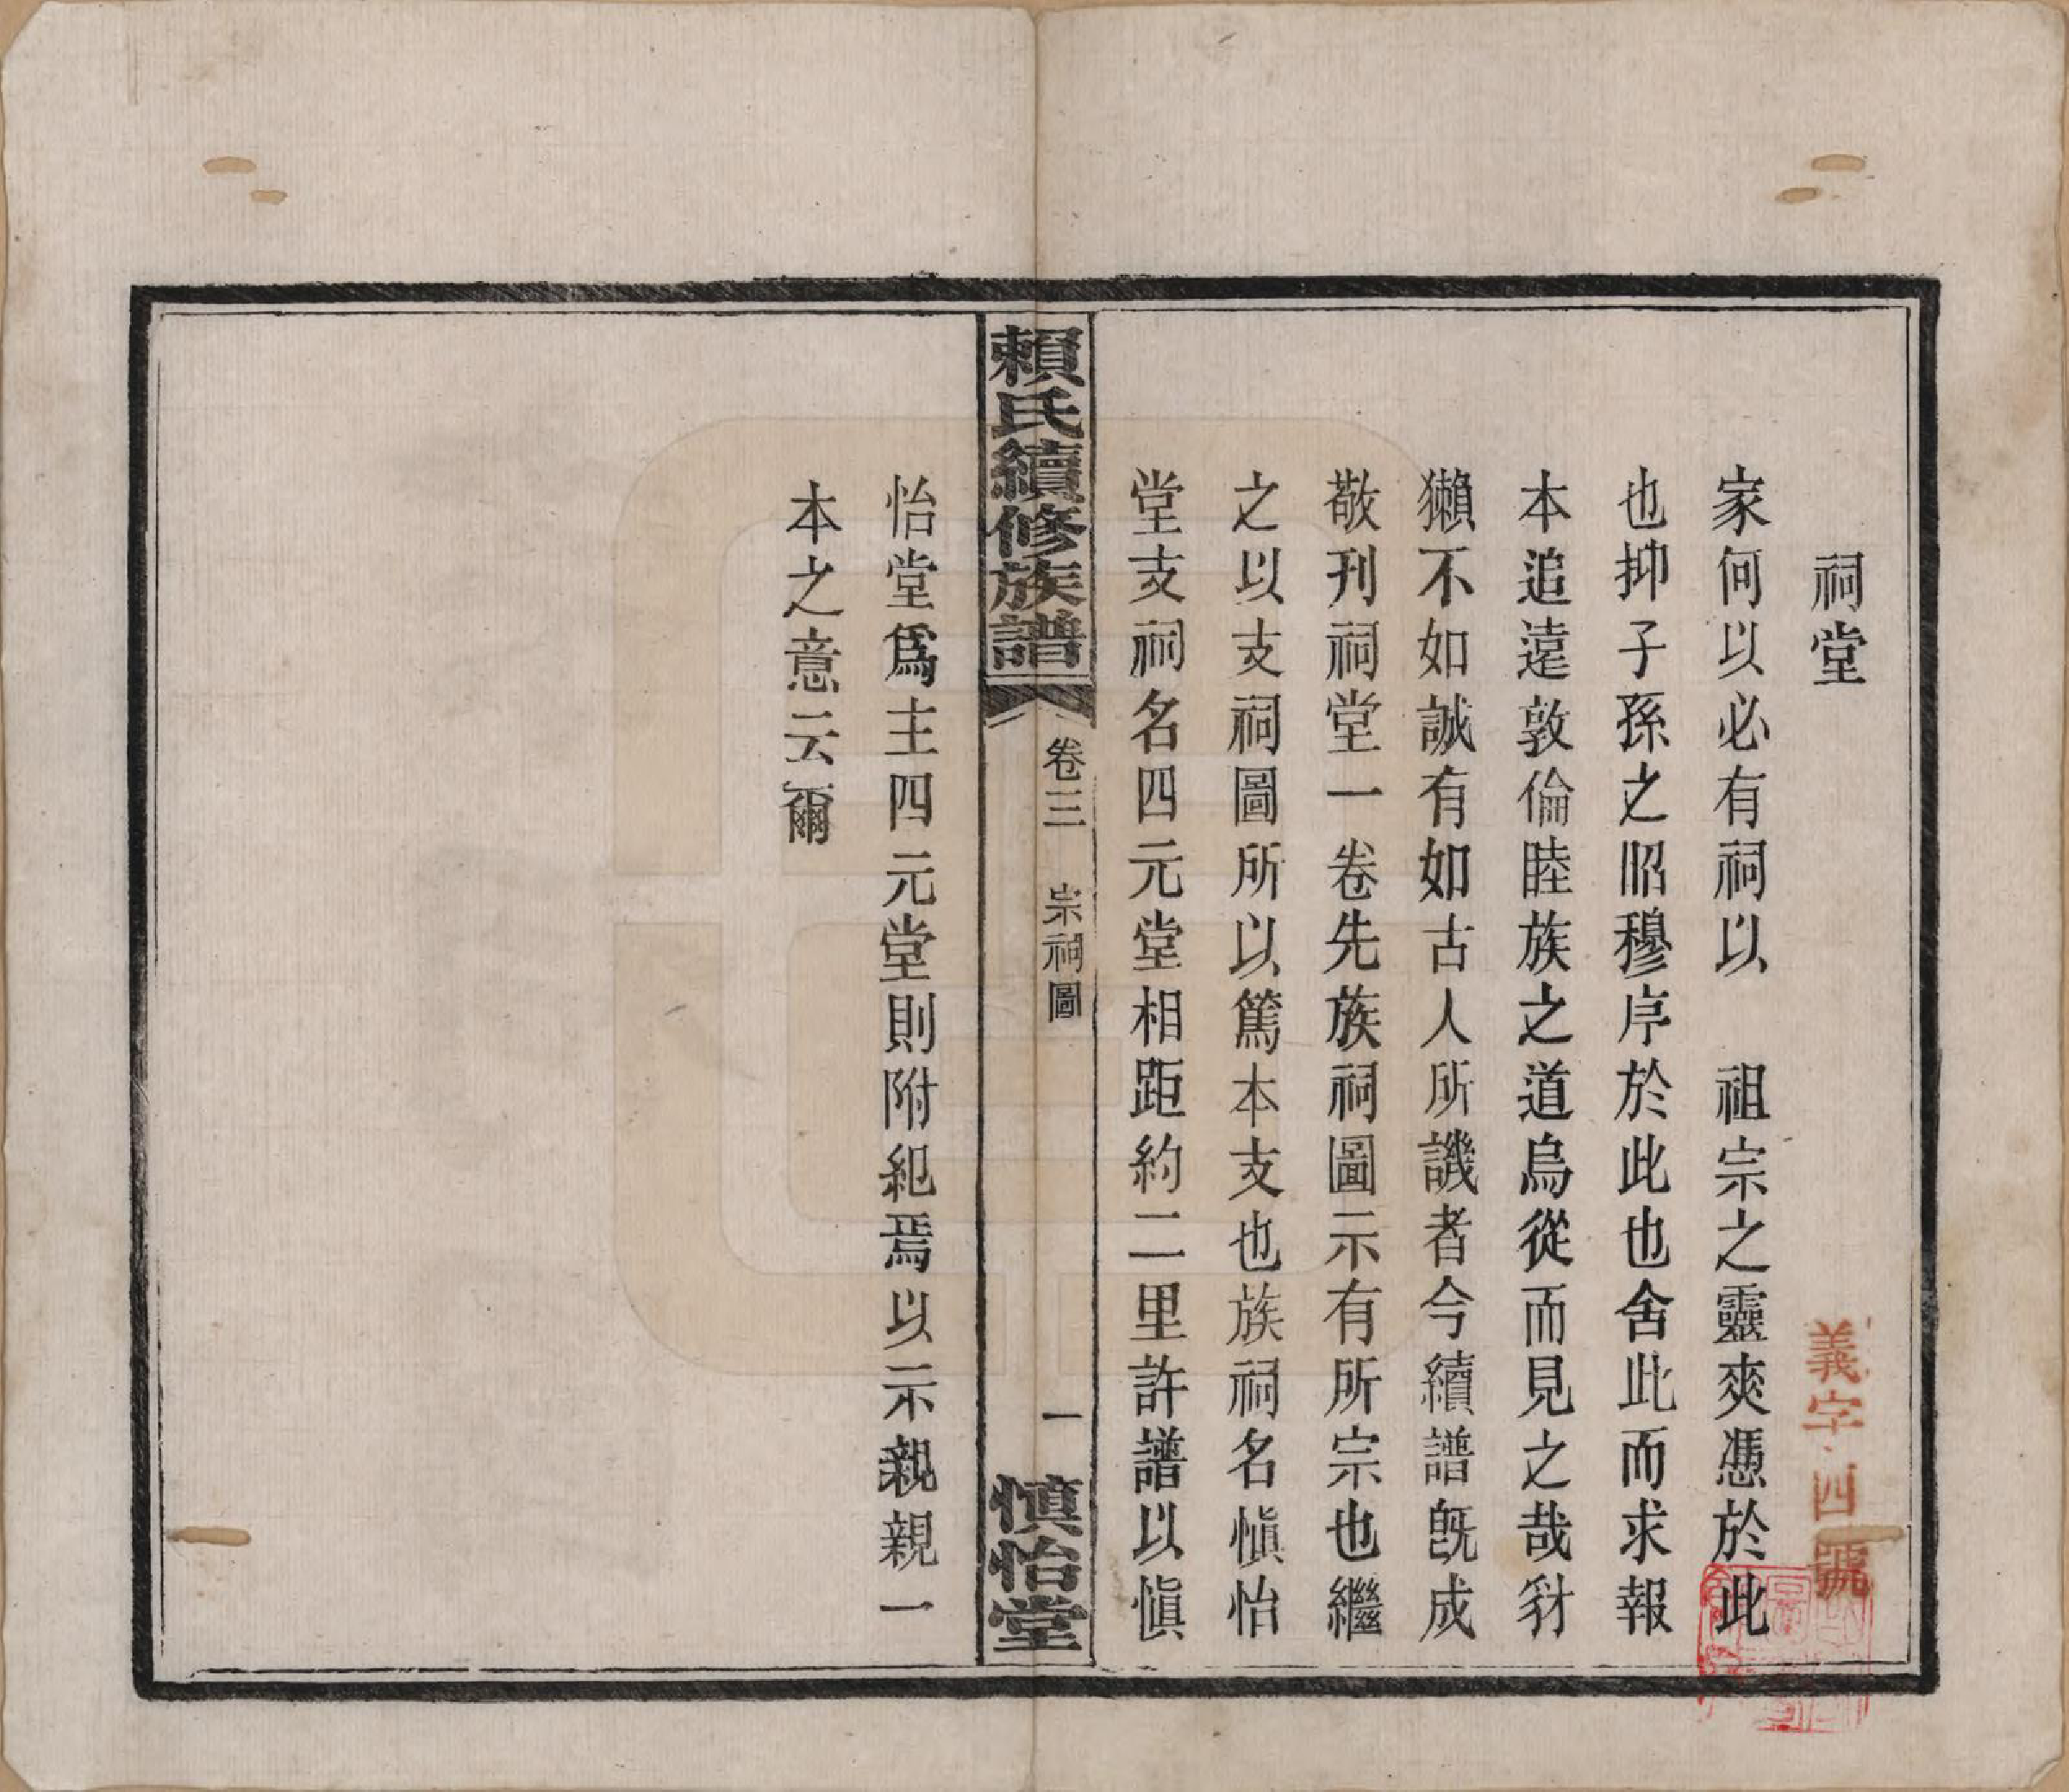 祠堂
家何以必有祠以　祖宗之靈爽憑於此
也抑子孫之昭穆序於此也舍此而求報
本追遠敦倫睦族之道烏從而見之哉豺
獺不如誠有如古人所譏者今續譜旣成
敬刊祠堂一卷先族祠圖示有所宗也繼
之以支祠圖所以篤本支也族祠名愼怡
堂支祠名四元堂相距約二里許譜以愼
賴氏續修族譜
卷三　宗祠圖
一
愼怡堂
怡堂爲主四元堂則附紀焉以示親親一
本之意云爾
義字
四號